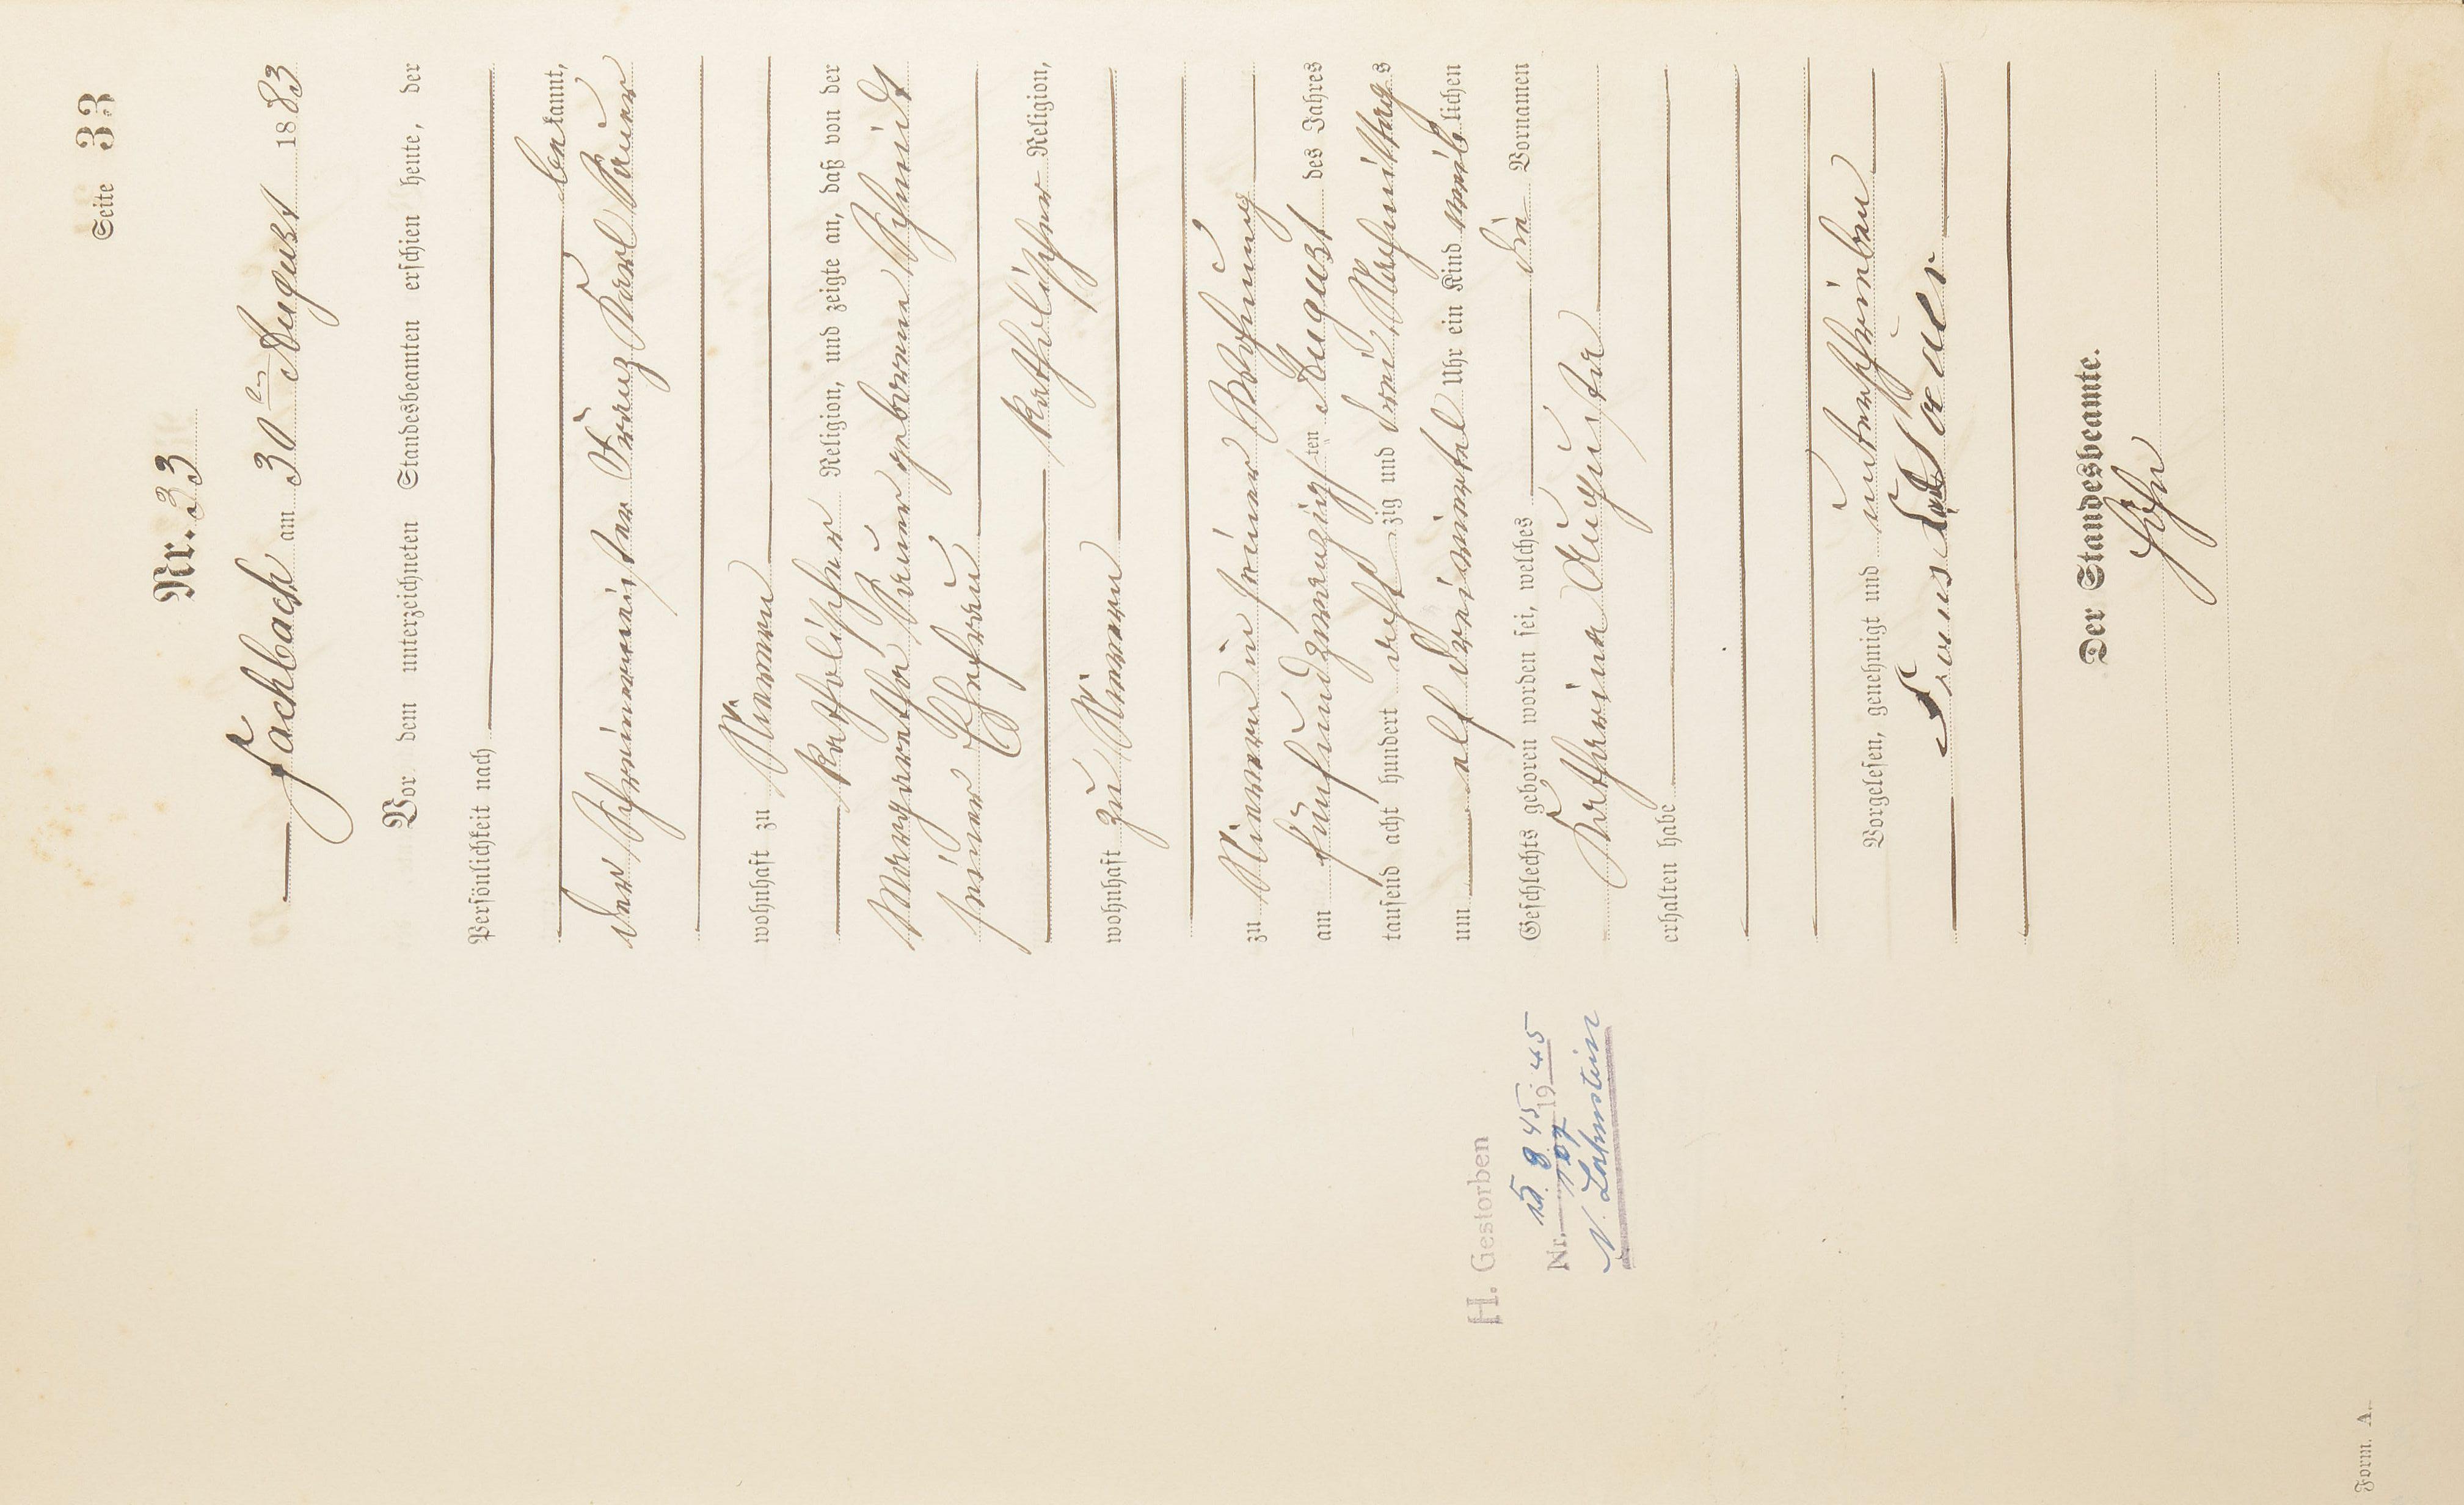 Seite 33
Nr. 33
Fachbach am 30ten August 1883
Vor dem unterzeichneten Standesbeamten erschien heute, der
Persönlichkeit nach
bekannt,
der Schreinermeister Franz Karl Sauer
wohnhaft zu Nievern
katholischer Religion, und zeigte an, daß von der
Margaretha Sauer geborene Schmidt
seiner Ehefrau
katholischer Religion,
wohnhaft zu Nievern
zu Nievern in seiner Wohnung
am fünfundzwanzigsten August des Jahres
tausend acht hundert achtzig und drei Nachmittags
um elf dreiviertel Uhr ein Kind weiblichen
Geschlechts geboren worden sei, welches die Vornamen
Katharina Auguste
erhalten habe
Vorgelesen, genehmigt und unterschrieben
Frans Karl Sauer
Der Standesbeamte.
H. Gestorben
8. 45
Nr. 19 45
N. Lahnstein
Form. A.